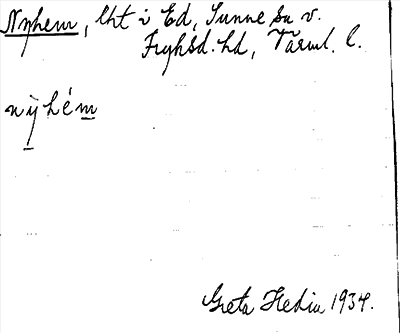 Nyhem, lht i Ed, Sunne sn v.
Fryksd. hd, Värml. l.
nẙhém
Greta Hedin 1934.